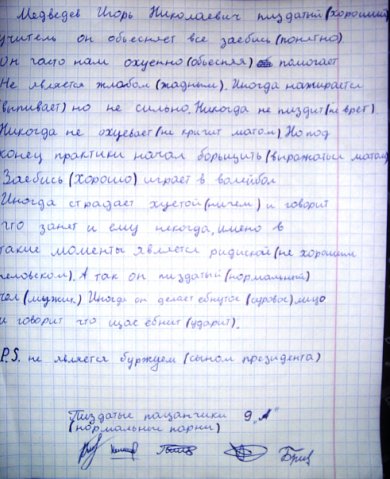 Медведев Игорь Николаевич пиздатый (хороший)
учитель он обьесняет все заебись (понятно)
Он часто нам охуенно (обьесняя) помогает
Не является жлобом (жадным). Иногда нажирается
(выпивает) но не сильно. Никогда не пиздит (не врет).
Никогда не охуевает (не кричит матом) Но под
конец практики начал борьщить (выражатся матом)
Заебись (хорошо) играет в волейбол
Иногда страдает хуетой (ничем) и говорит
что занет и ему некогда, имено в
такие моменты является редиской (не хорошим
человеком). А так он пиздатый (нормальный)
чел (мужик,) Иногда он делает ебнутое (суровое) лицо
и говорит что щас ебнит (ударит).
P.S. не является буржуем (сыном президента)
Пиздатые пацанчики 9 "А"
(нормальные парни)